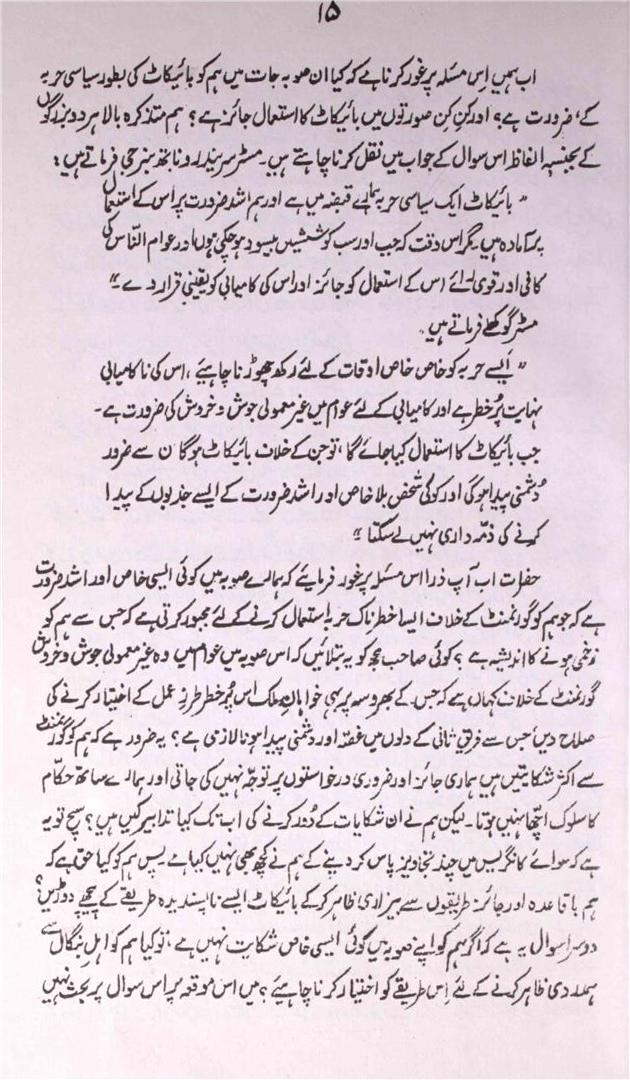 ۱۵
اب ہمیں اِس مسئلہ پر غور کرنا ہے کہ کیا ان صوبہ جات میں ہم کو بائیکاٹ کی بطور سیاسی حربہ
کے، ضرورت ہے؟ اور کِن کِن صورتوں میں بائیکاٹ کا استعمال جائز ہے؟ ہم متذکرہ بالا ہر دو بزرگوں
کے بجنسہٖ الفاظ اس سوال کے جواب میں نقل کرنا چاہتے ہیں۔ مسٹر سریندرو ناتھ بنرجی فرماتے ہیں:
"بائیکاٹ ایک سیاسی حربہ ہمارے قبضہ میں ہے اور ہم اشد ضرورت پر اس کے استعمال
پر آمادہ ہیں۔ مگر اس وقت کہ جب اور سب کوششیں بیسود ہو چکی ہوں اور عوام النّاس کی
کافی اور قوی رائے اس کے استعمال کو جائز اور اس کی کامیابی کو یقینی قرار دے۔"
مسٹر گوکھلے فرماتے ہیں۔
"ایسے حربہ کو خاص خاص اوقات کے لئے رکھ چھوڑنا چاہیئے، اس کی ناکامیابی
نہایت پُر خطر ہے اور کامیابی کے لئے عوام میں غیر معمولی جوش و خروش کی ضرورت ہے۔
جب بائیکاٹ کا استعمال کیا جائے گا، تو جن کے خلاف بائیکاٹ ہوگا ان سے ضرور
دُشمنی پیدا ہوگی اور کوئی شخص بلا خاص اور اشد ضرورت کے ایسے جذبوں کے پیدا
کرنے کی ذمّہ داری نہیں لے سکتا"
حضرات اب آپ ذرا اس مسئلہ پر غور فرمایئے کہ ہمارے صوبہ میں کوئی ایسی خاص اور اشد ضرورت
ہے کہ جو ہم کو گورنمنٹ کے خلاف ایسا خطرناک حربہ استعمال کرنے کے لئے مجبور کرتی ہے کہ جس سے ہم کو
زخمی ہونے کا اندیشہ ہے؟ کوئی صاحب مجھ کو یہ بتلائیں کہ اس صوبہ میں عوام میں وہ غیر معمولی جوش و خروش
گورنمنٹ کے خلاف کہاں ہے کہ جس کے بھروسہ پر بہی خواہانِ ملک اس پُر خطر طرزِ عمل کے اختیار کرنے کی
صلاح دیں، جس سے فریقِ ثانی کے دلوں میں غصّہ اور دشمنی پیدا ہونا لازمی ہے؟ یہ ضرور ہے کہ ہم کو گورنمنٹ
سے اکثر شکایتیں ہیں ہماری جائز اور ضروری درخواستوں پر توجّہ نہیں کی جاتی اور ہمارے ساتھ حکّام
کا سلوک اچھّا نہیں ہوتا۔ لیکن ہم نے ان شکایات کے دُور کرنے کی اب تک کیا تدابیر کیں ہیں؟ سچ تو یہ
ہے کہ سوائے کانگریس میں چند تجاویز پاس کر دینے کے ہم نے کچھ بھی نہیں کیا ہے پس ہم کو کیا حق ہے کہ
ہم باقاعدہ اور جائز طریقوں سے بیزاری ظاہر کرکے بائیکاٹ ایسے ناپسندیدہ طریقے کے پیچھے دوڑیں؟
دوسرا سوال یہ ہے کہ اگر ہم کو اپنے صوبہ میں کوئی ایسی خاص شکایت نہیں ہے، تو کیا ہم کو اہلِ بنگال سے
ہمدردی ظاہر کرنے کے لئے اِس طریقے کو اختیار کرنا چاہیئے؟ میں اس موقعہ پر اس سوال پر بحث نہیں